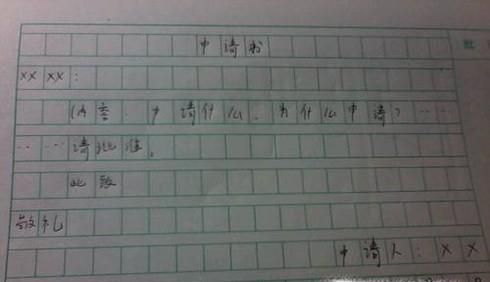 申请书
XX XX：
(内容：申请什么、为什么申请)……
……请批准。
此致
敬礼
申请人：XX